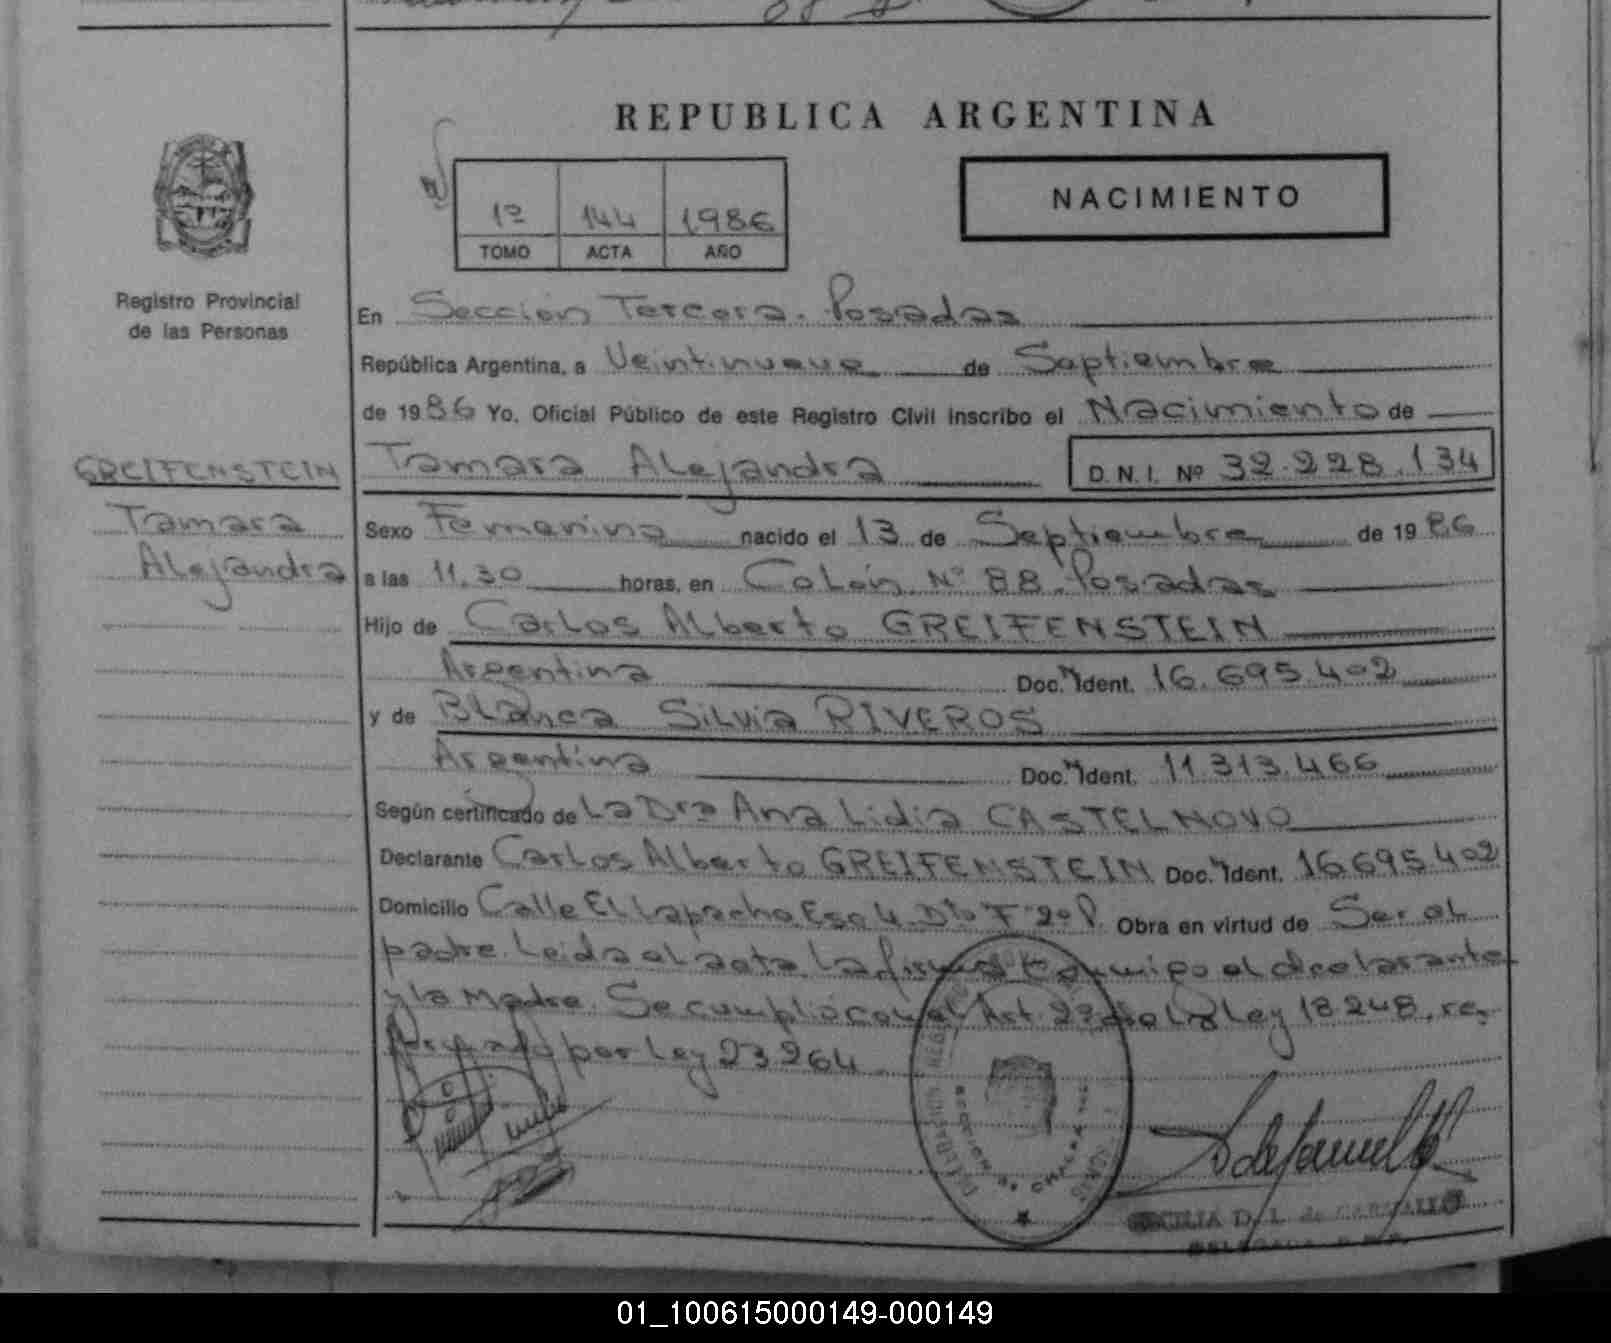 REPUBLICA ARGENTINA
NACIMIENTO
1º 144 1986
TOMO ACTA AÑO
Registro Provincial
de las Personas
En Sección Tercera. Posadas
República Argentina, a Veintinueve de Septiembre
de 1986 Yo, Oficial Público de este Registro Civil inscribo el Nacimiento de
GREIFENSTEIN
Tamara Alejandra
Tamara Alejandra D.N.I. Nº 32.228.134
Sexo Femenino nacido el 13 de Septiembre de 1986
a las 11.30 horas, en Colón Nº 88. Posadas
Hijo de Carlos Alberto GREIFENSTEIN
Argentina Doc. Ident. 16.695.402
y de Blanca Silvia RIVEROS
Argentina Doc. Ident. 11.313.466
Según certificado de La Dra Ana Lidia CASTELNOVO
Declarante Carlos Alberto GREIFENSTEIN Doc. Ident. 16.695.402
Domicilio Calle El Lapacho Esc 4. Dto F 2º P. Obra en virtud de Ser el
padre. Leida el acta La firma conmigo el declarante
y la Madre. Se cumplió con el Art. 2º de la Ley 18248, re-
formado por Ley 23264
CECILIA D. L. de CARVALLO
01_100615000149-000149